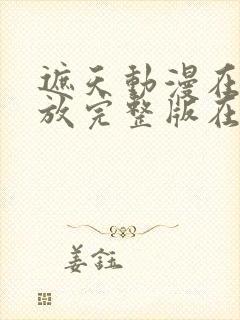 遮天動漫在
放完整版在
姜鈺